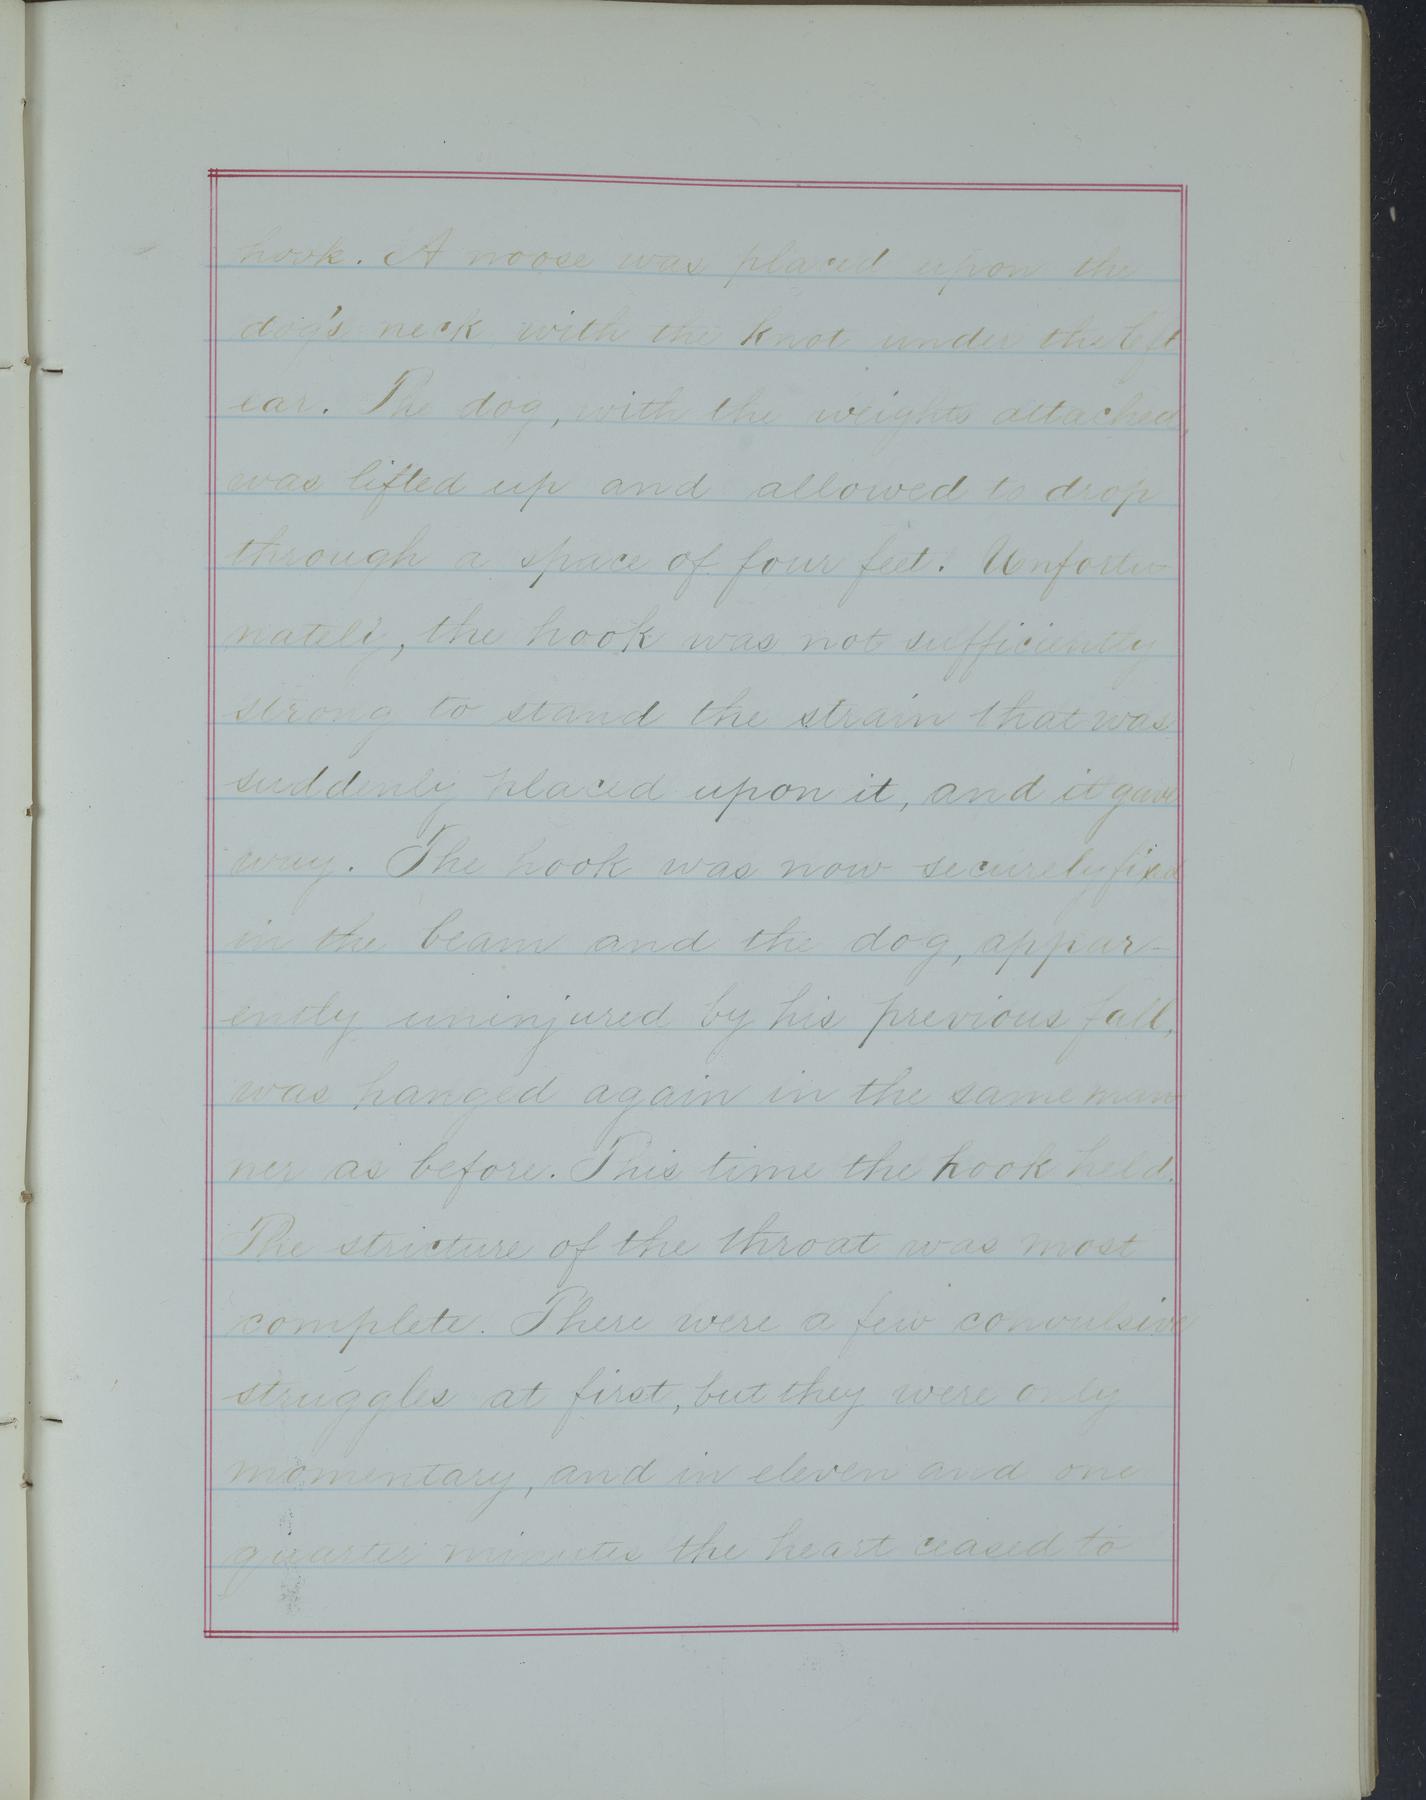 hook. A noose was placed upon the
dog's neck with the knot under the left
ear. The dog, with the weights attached,
was lifted up and allowed to drop
through a space of four feet. Unfortu-
nately, the hook was not sufficiently
strong to stand the strain that was
suddenly placed upon it, and it gave
way. The hook was now securely fixed
in the beam and the dog, appar-
ently uninjured by his previous fall,
was hanged again in the same man-
ner as before. This time the hook held.
The stricture of the throat was most
complete. There were a few convulsive
struggles at first, but they were only
momentary, and in eleven and one
quarter minutes the heart ceased to